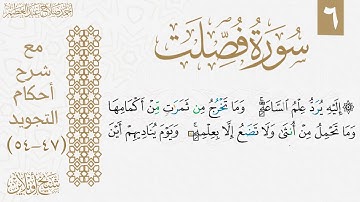 ٦
سُورَةُ فُصِّلَتْ
مع
شرح
أحكام
التجويد
(٤٧-٥٤)
۞ إِلَيْهِ يُرَدُّ عِلْمُ السَّاعَةِ ۚ وَمَا تَخْرُجُ مِن ثَمَرَٰتٍ مِّنْ أَكْمَامِهَا
وَمَا تَحْمِلُ مِنْ أُنثَىٰ وَلَا تَضَعُ إِلَّا بِعِلْمِهِ ۚ وَيَوْمَ يُنَادِيهِمْ أَيْنَ